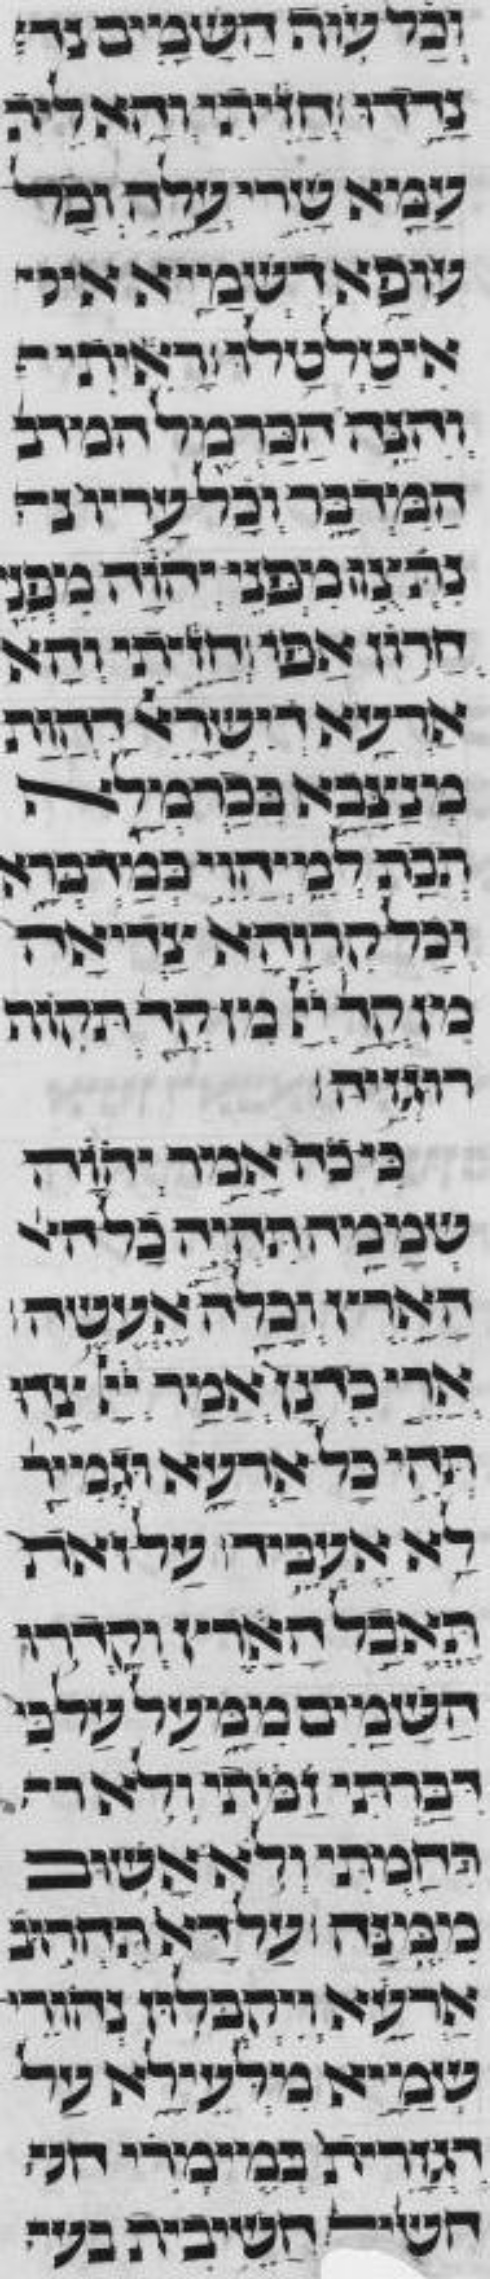 וְכָל עוֹף הַשָּׁמַיִם נד׃
נָדָדוּ׃ חֲזֵיתִי וְהָא לֵית
עַמָּא שָׁרֵי עֲלַהּ וְכָל
עוֹפָא דִּשְׁמַיָּא איט׳
אִיטַּלְטַלוּ׃ רָאִיתִי
וְהִנֵּה הַכַּרְמֶל המידב
הַמִּדְבָּר וְכָל עָרָיו נת
נִתְּצוּ מִפְּנֵי יְהוָה מִפְּנֵי
חֲרוֹן אַפּוֹ׃ חֲזֵיתִי וְהָא
אַרְעָא דְיִשְׂרָאֵל דַּהֲוָת
מְנַצְּבָא כְּכַרְמְלָא
הֲפַכָה לְמֵיהֱוֵי כְּמַדְבְּרָא
וְכָל קִרְוָהָא צְדִיאָה
מִן קֳדָם יְיָ מִן קֳדָם תְּקוֹף
רוּגְזֵיהּ׃
כִּי כֹה אָמַר יְהוָה
שְׁמָמָה תִהְיֶה כָּל הא
הָאָרֶץ וְכָלָה אֶעֱשֶׂה׃
אֲרֵי כִדְנַן אֲמַר יְיָ צדו
תְּהֵי כָל אַרְעָא וּגְמֵירָא
לָא אַעֲבֵיד׃ עַל זֹאת
תֶּאֱבַל הָאָרֶץ וְקָדְרוּ
הַשָּׁמַיִם מִמָּעַל עַל כִּי
דִבַּרְתִּי זַמֹּתִי וְלֹא
נִחַמְתִּי וְלֹא אָשׁוּב
מִמֶּנָּה׃ עַל דָּא תֶּחֱרוֹב
אַרְעָא וְיִקְבְּלוּן נְהוֹרֵי
שְׁמַיָּא מִלְּעֵילָא עַל
דִּגְזָרִית בְּמֵימְרִי
חֲשֵׁיבִית